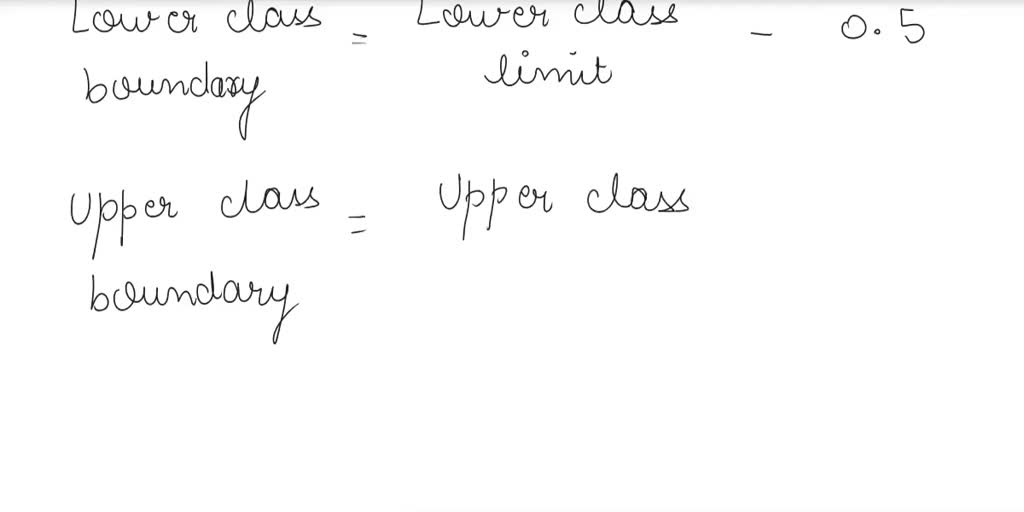 Lower class = Lower class - 0.5
boundary limit
Upper class = Upper class
boundary